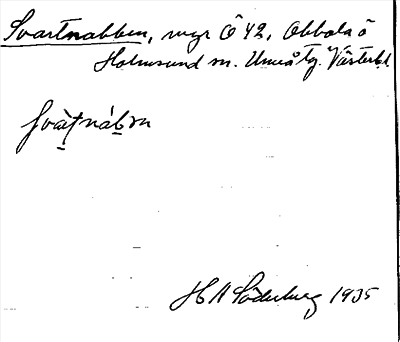 Svartnabben, mgr Ö 42, Obbola ö
Holmsund sn. Umeå tg. Västerb.l.
svàʈnábm
H A Söderberg 1935